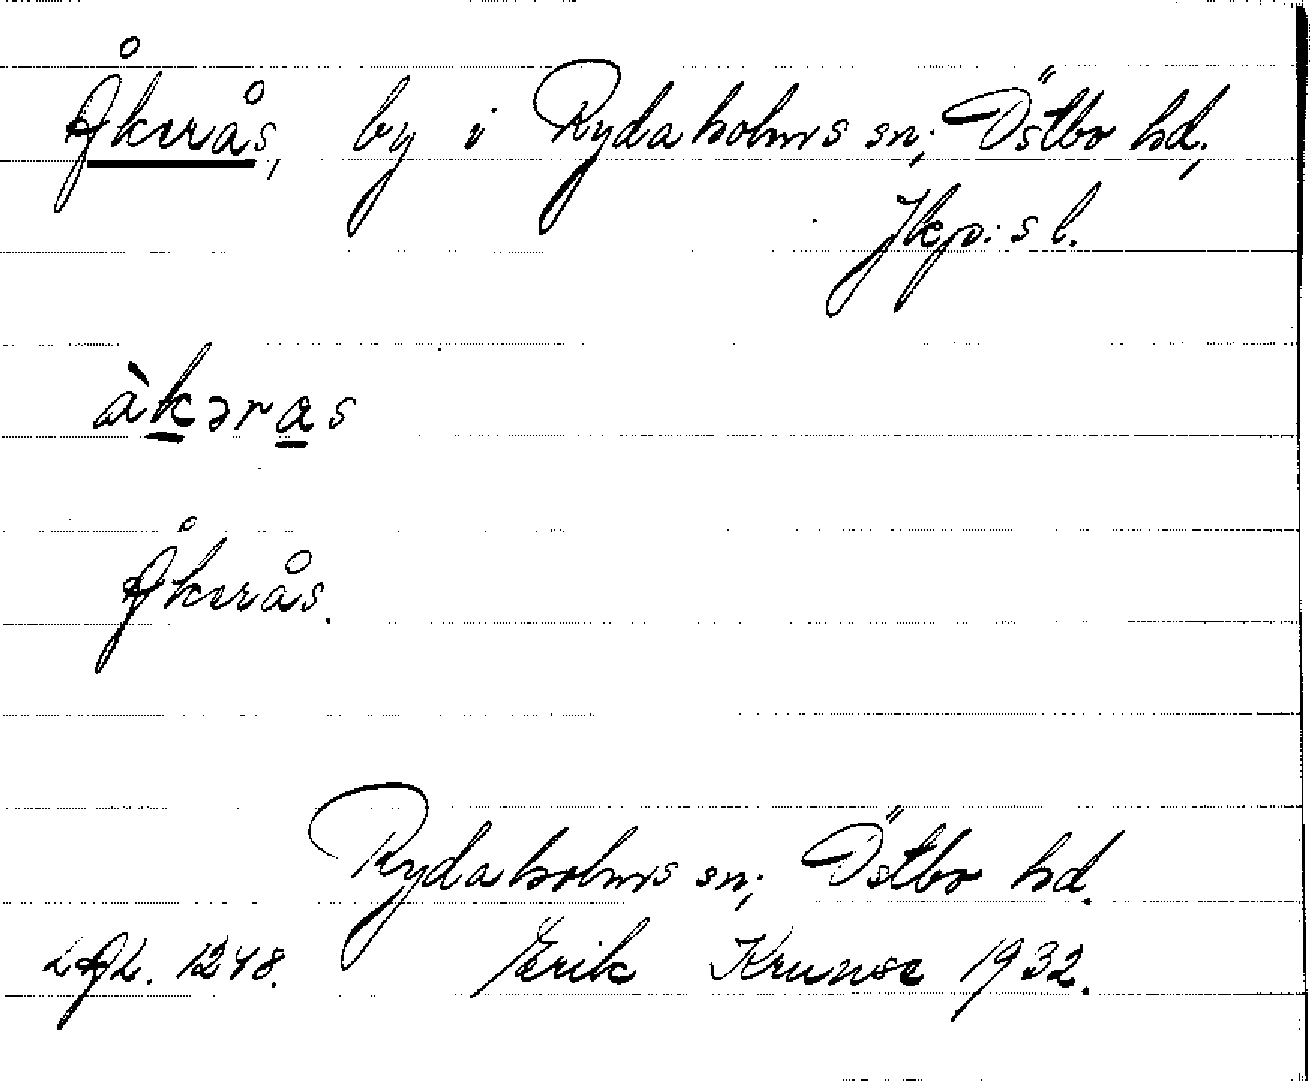 Åkerås, by i Rydaholms sn; Östbo hd;
Jkp:s l.
àkəras
Åkerås.
Rydaholms sn; Östbo hd.
LAL. 1248. Erik Krunse 1932.